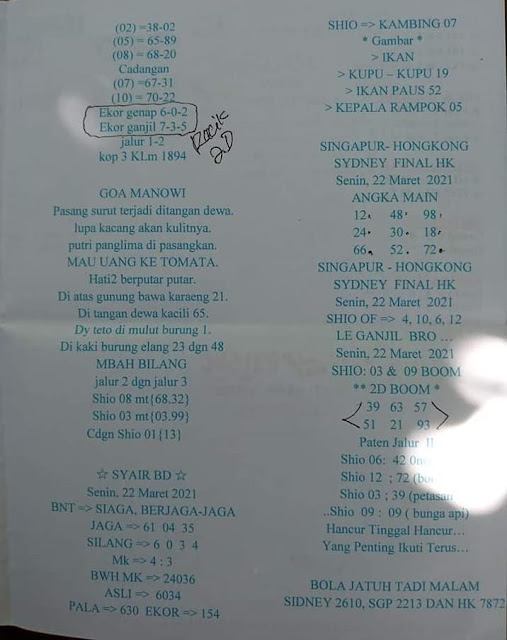 (02) = 38-02
(05) = 65-89
(08) = 68-20
Cadangan
(07) =67-31
(10) = 70-22
Ekor genap 6-0-2
Ekor ganjil 7-3-5
Racik
2D
jalur 1-2
kop 3 KLm 1894
GOA MANOWI
Pasang surut terjadi ditangan dewa.
lupa kacang akan kulitnya.
putri panglima di pasangkan.
MAU UANG KE TOMATA.
Hati2 berputar putar.
Di atas gunung bawa karaeng 21.
Di tangan dewa kacili 65.
Dy teto di mulut burung 1.
Di kaki burung elang 23 dgn 48
MBAH BILANG
jalur 2 dgn jalur 3
Shio 08 mt{68.32}
Shio 03 mt{03.99}
Cdgn Shio 01{13}
☆ SYAIR BD ☆
Senin, 22 Maret 2021
BNT => SIAGA, BERJAGA-JAGA
JAGA => 61 04 35
SILANG => 6 0 3 4
Mk => 4 : 3
BWH MK => 24036
ASLI => 6034
PALA => 630 EKOR => 154
SHIO => KAMBING 07
* Gambar *
> IKAN
> KUPU – KUPU 19
> IKAN PAUS 52
> KEPALA RAMPOK 05
SINGAPUR- HONGKONG
SYDNEY FINAL HK
Senin, 22 Maret 2021
ANGKA MAIN
12 48 98
24 30 18
66 52 72
SINGAPUR - HONGKONG
SYDNEY FINAL HK
Senin, 22 Maret 2021
SHIO OF => 4, 10, 6, 12
LE GANJIL BRO …
Senin, 22 Maret 2021
SHIO: 03 & 09 BOOM
** 2D BOOM *
39 63 57
51 21 93
Paten Jalur
Shio 06: 42
Shio 12 ; 72
Shio 03 ; 39 (petasan
..Shio 09 : 09 ( bunga api)
Hancur Tinggal Hancur…
Yang Penting Ikuti Terus…
BOLA JATUH TADI MALAM
SIDNEY 2610, SGP 2213 DAN HK 7872